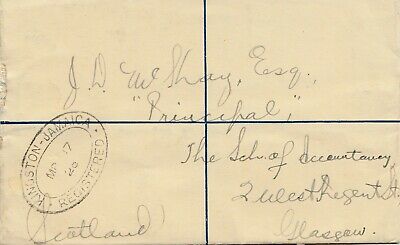 J. D. McShay, Esq.,
"Principal",
The Sch. of Accountancy
2 West Regent St.
Glasgow.
Scotland
KINGSTON-JAMAICA
MR 17
26
REGISTERED